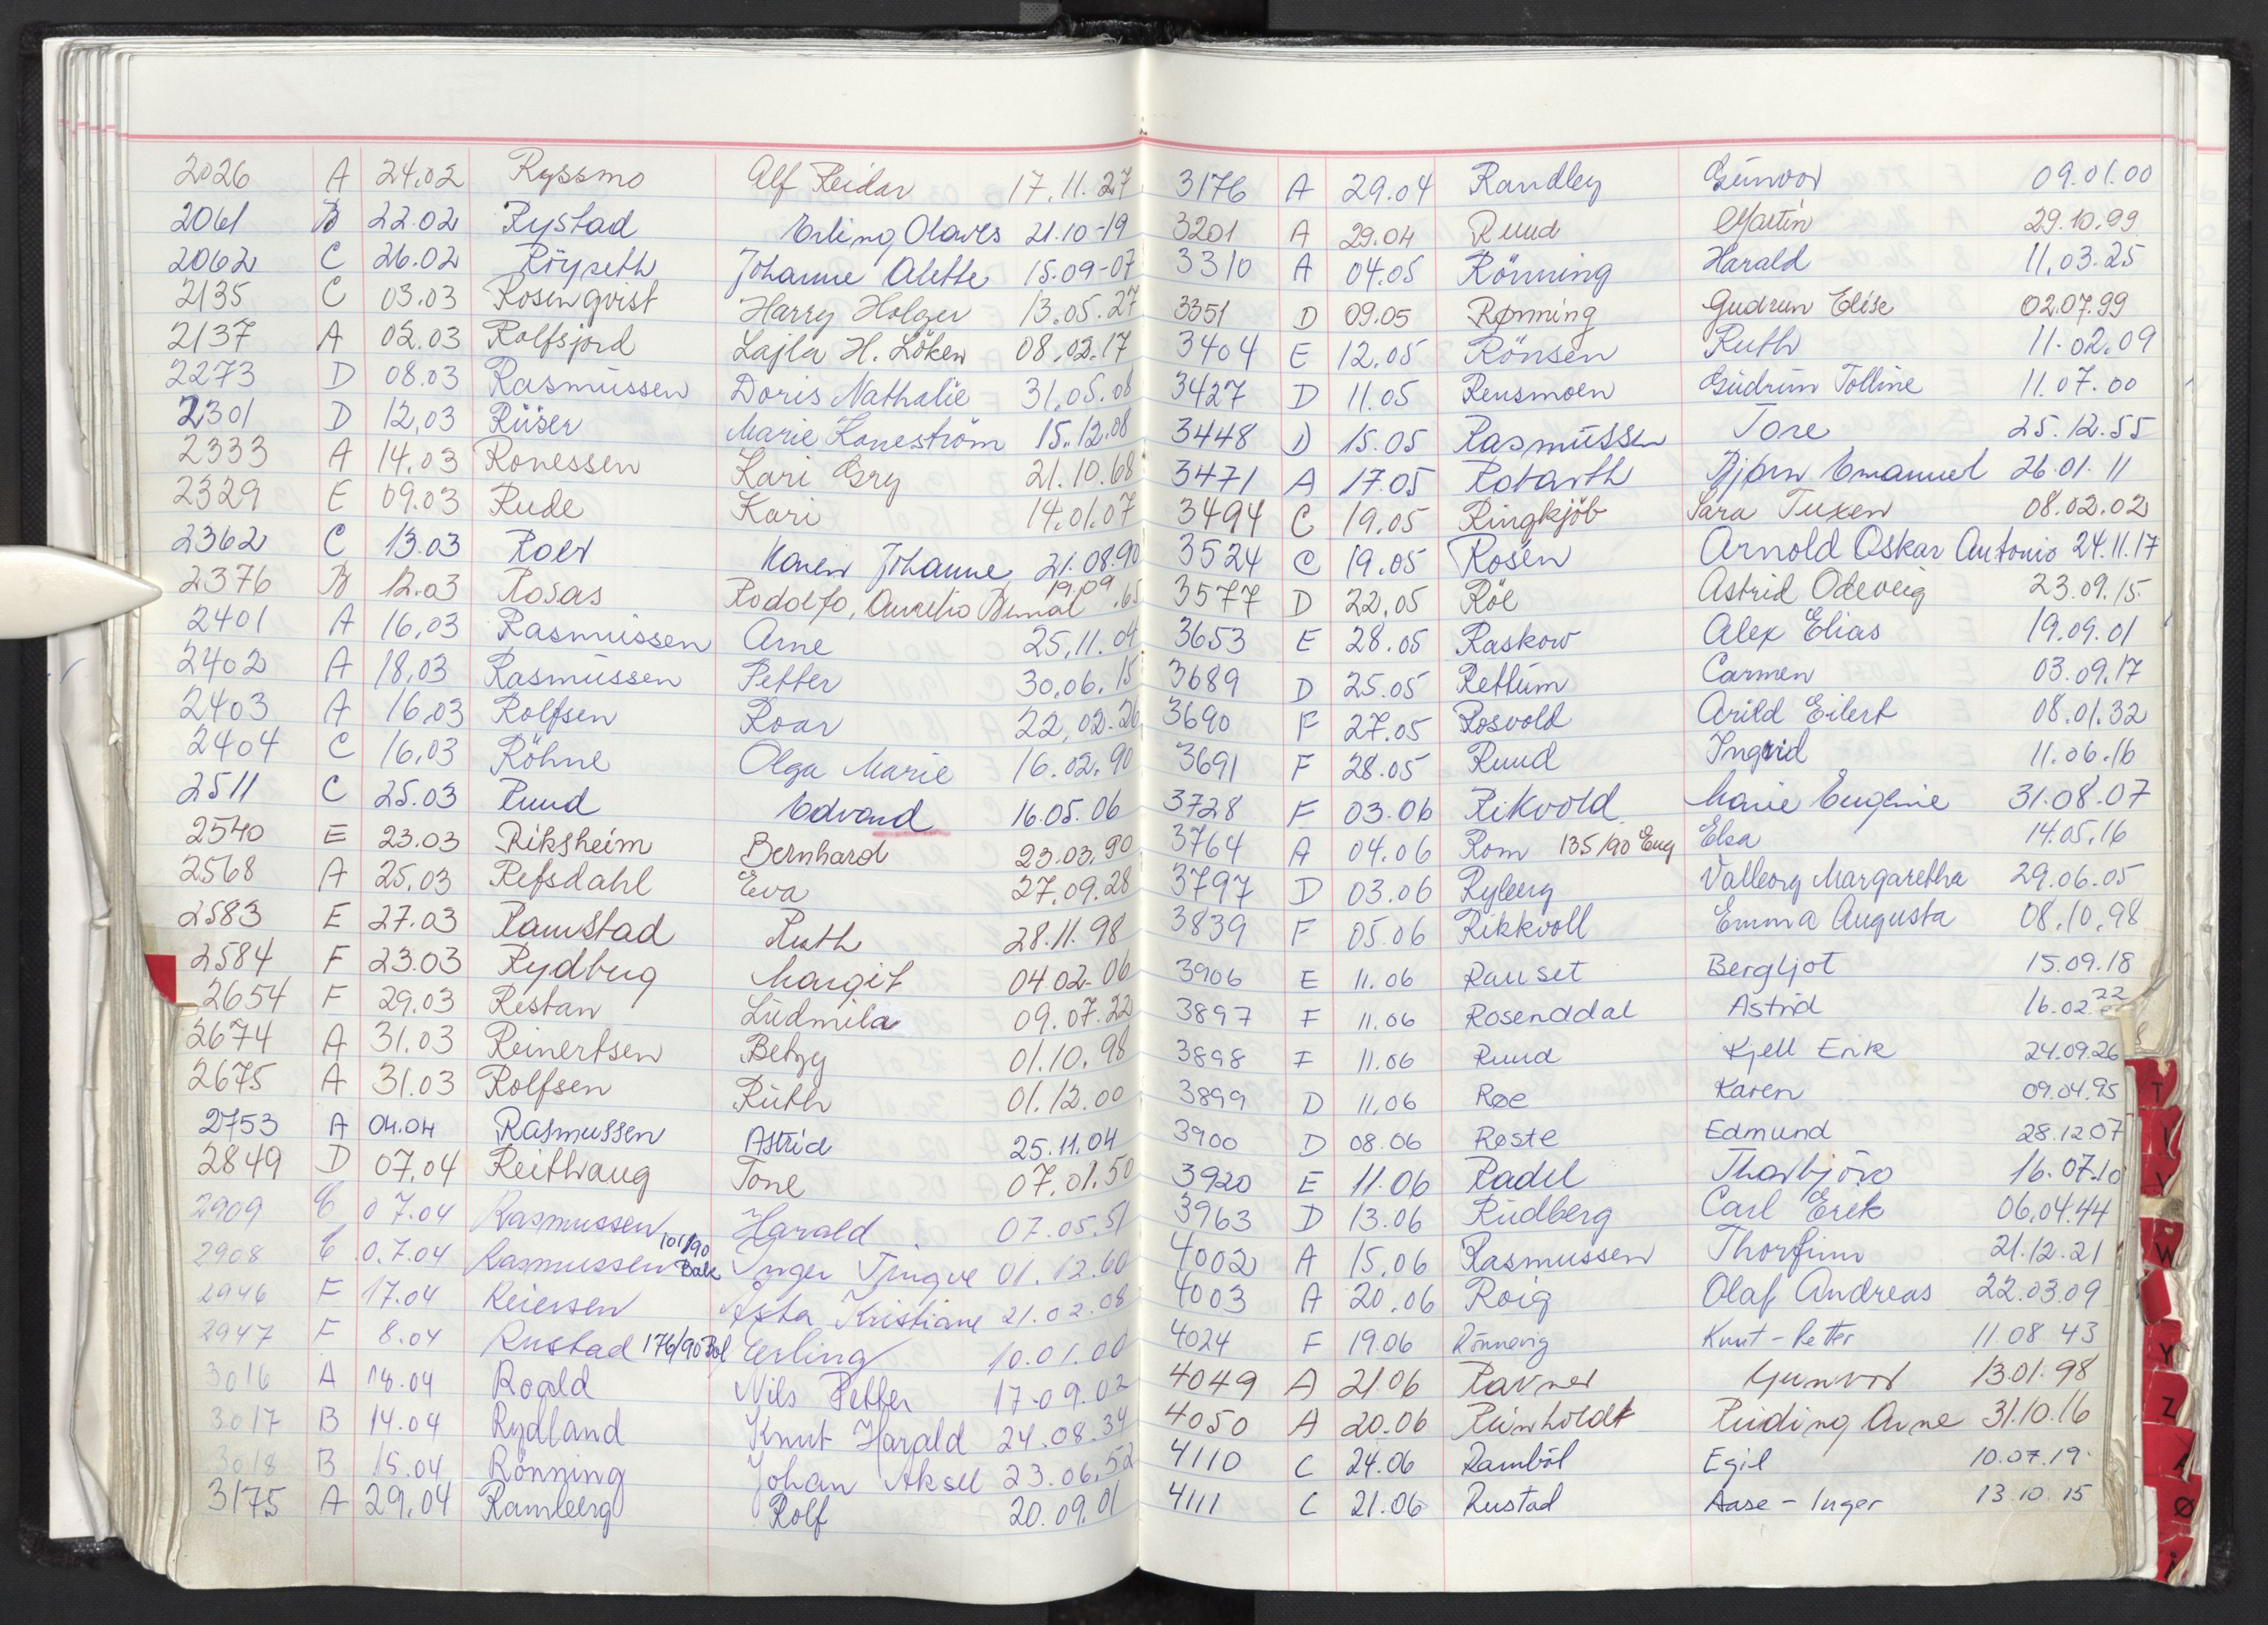 2026 A 24.02 Ryssmo Alf Reidar 17.11.27
2061 B 22.02 Rystad Erling Olaves 21.10-19
2062 C 26.02 Röyseth Johanne Alette 15.09-07
2135 C 03.03 Rosenqvist Harry Holger 13.05.27
2137 A 02.03 Rolfsjord Lajla H. Löken 08.02.17
2273 D 08.03 Rasmussen Doris Nathalie 31.05.08
2301 D 12.03 Rüser Marie 15.12.08
2333 A 14.03 Ronessen Kari Gry 21.10.68
2329 E 09.03 Rude Kari 14.01.07
2362 C 13.03 Roer Karen Johanne 21.08.90
2376 B 12.03 Rosas Rodolfo, Aurelio Bernal 19.09.65
2401 A 16.03 Rasmussen Arne 25.11.04
2402 A 18.03 Rasmussen Petter 30.06.15
2403 A 16.03 Rolfsen Roar 22.02.26
2404 C 16.03 Röhne Olga Marie 16.02.90
2511 C 25.03 Ruud Edvard 16.05.06
2540 E 23.03 Riksheim Bernhard 23.03.90
2568 A 25.03 Refsdahl Eva 27.09.28
2583 E 27.03 Ramstad Ruth 28.11.98
2584 F 23.03 Rydberg Margit 04.02-06
2654 F 29.03 Restan Ludmila 09.07.22
2674 A 31.03 Reinertsen Betzy 01.10.98
2675 A 31.03 Rolfsen Ruth 01.12.00
2753 A 04.04 Rasmussen Astrid 25.11.04
2849 D 07.04 Reithaug Tone 07.01.50
2909 E 07.04 Rasmussen Harald 07.05.51
2908 E 07.04 Rasmussen 101/90 Bak Inger Tjingve 01.12.60
2946 F 17.04 Reiersen Asta Kristiane 21.02.08
2947 F 8.04 Rustad 176/90 Bol Erling 10.01.00
3016 A 18.04 Roald Nils Petter 17.09.02
3017 B 14.04 Rydland Knut Harald 24.08.34
3018 B 15.04 Rönning Johan Aksel 23.06.52
3175 A 29.04 Ramberg Rolf 20.09.01
3176 A 29.04 Randby Gunvor 09.01.00
3201 A 29.04 Ruud Martin 29.10.99
3310 A 04.05 Rönning Harald 11.03.25
3351 D 09.05 Rønning Gudrun Elise 02.07.99
3404 E 12.05 Rönsen Ruth 11.02.09
3427 D 11.05 Rensmoen Gudrun Tolline 11.07.00
3448 D 15.05 Rasmussen Tore 25.12.55
3471 A 17.05 Rotarth Bjørn Emanuel 26.01.11
3494 C 19.05 Ringkjöb Sara Tuxen 08.02.02
3524 C 19.05 Rosen Arnold Oskar Antonio 24.11.17
3577 D 22.05 Röe Astrid Odveig 23.09.15
3653 E 28.05 Raskow Alex Elias 19.09.01
3689 D 25.05 Rettum Carmen 03.09.17
3690 F 27.05 Rosvold Arild Eilert 08.01.32
3691 F 28.05 Ruud Ingrid 11.06.16
3728 F 03.06 Rikvold Marie Eugenie 31.08.07
3764 A 04.06 Rom 135/90 Eng Elsa 14.05.16
3797 D 03.06 Ryberg Valborg Margaretha 29.06.05
3839 F 05.06 Rikkvoll Emma Augusta 08.10.98
3906 E 11.06 Rauset Bergljot 15.09.18
3897 F 11.06 Rosenddal Astrid 16.02.22
3898 F 11.06 Ruud Kjell Erik 24.09.26
3899 D 11.06 Røe Karen 09.04.95
3900 D 08.06 Røste Edmund 28.12.07
3920 E 11.06 Radel Thorbjörn 16.07.10
3963 D 13.06 Rudberg Carl Erik 06.04.44
4002 A 15.06 Rasmussen Thorfinn 21.12.21
4003 A 20.06 Roig Olaf Andreas 22.03.09
4024 F 19.06 Rönnevig Knut-Petter 11.08 43
4049 A 21.06 Ravner Gunvor 13.01.98
4050 A 20.06 Reinholdt Reiding Arne 31.10.16
4110 C 24.06 Ramböl Egil 10.07.19
4111 C 21.06 Rustad Aase-Inger 13.10.15
T
V
W
Y
Z
Ø